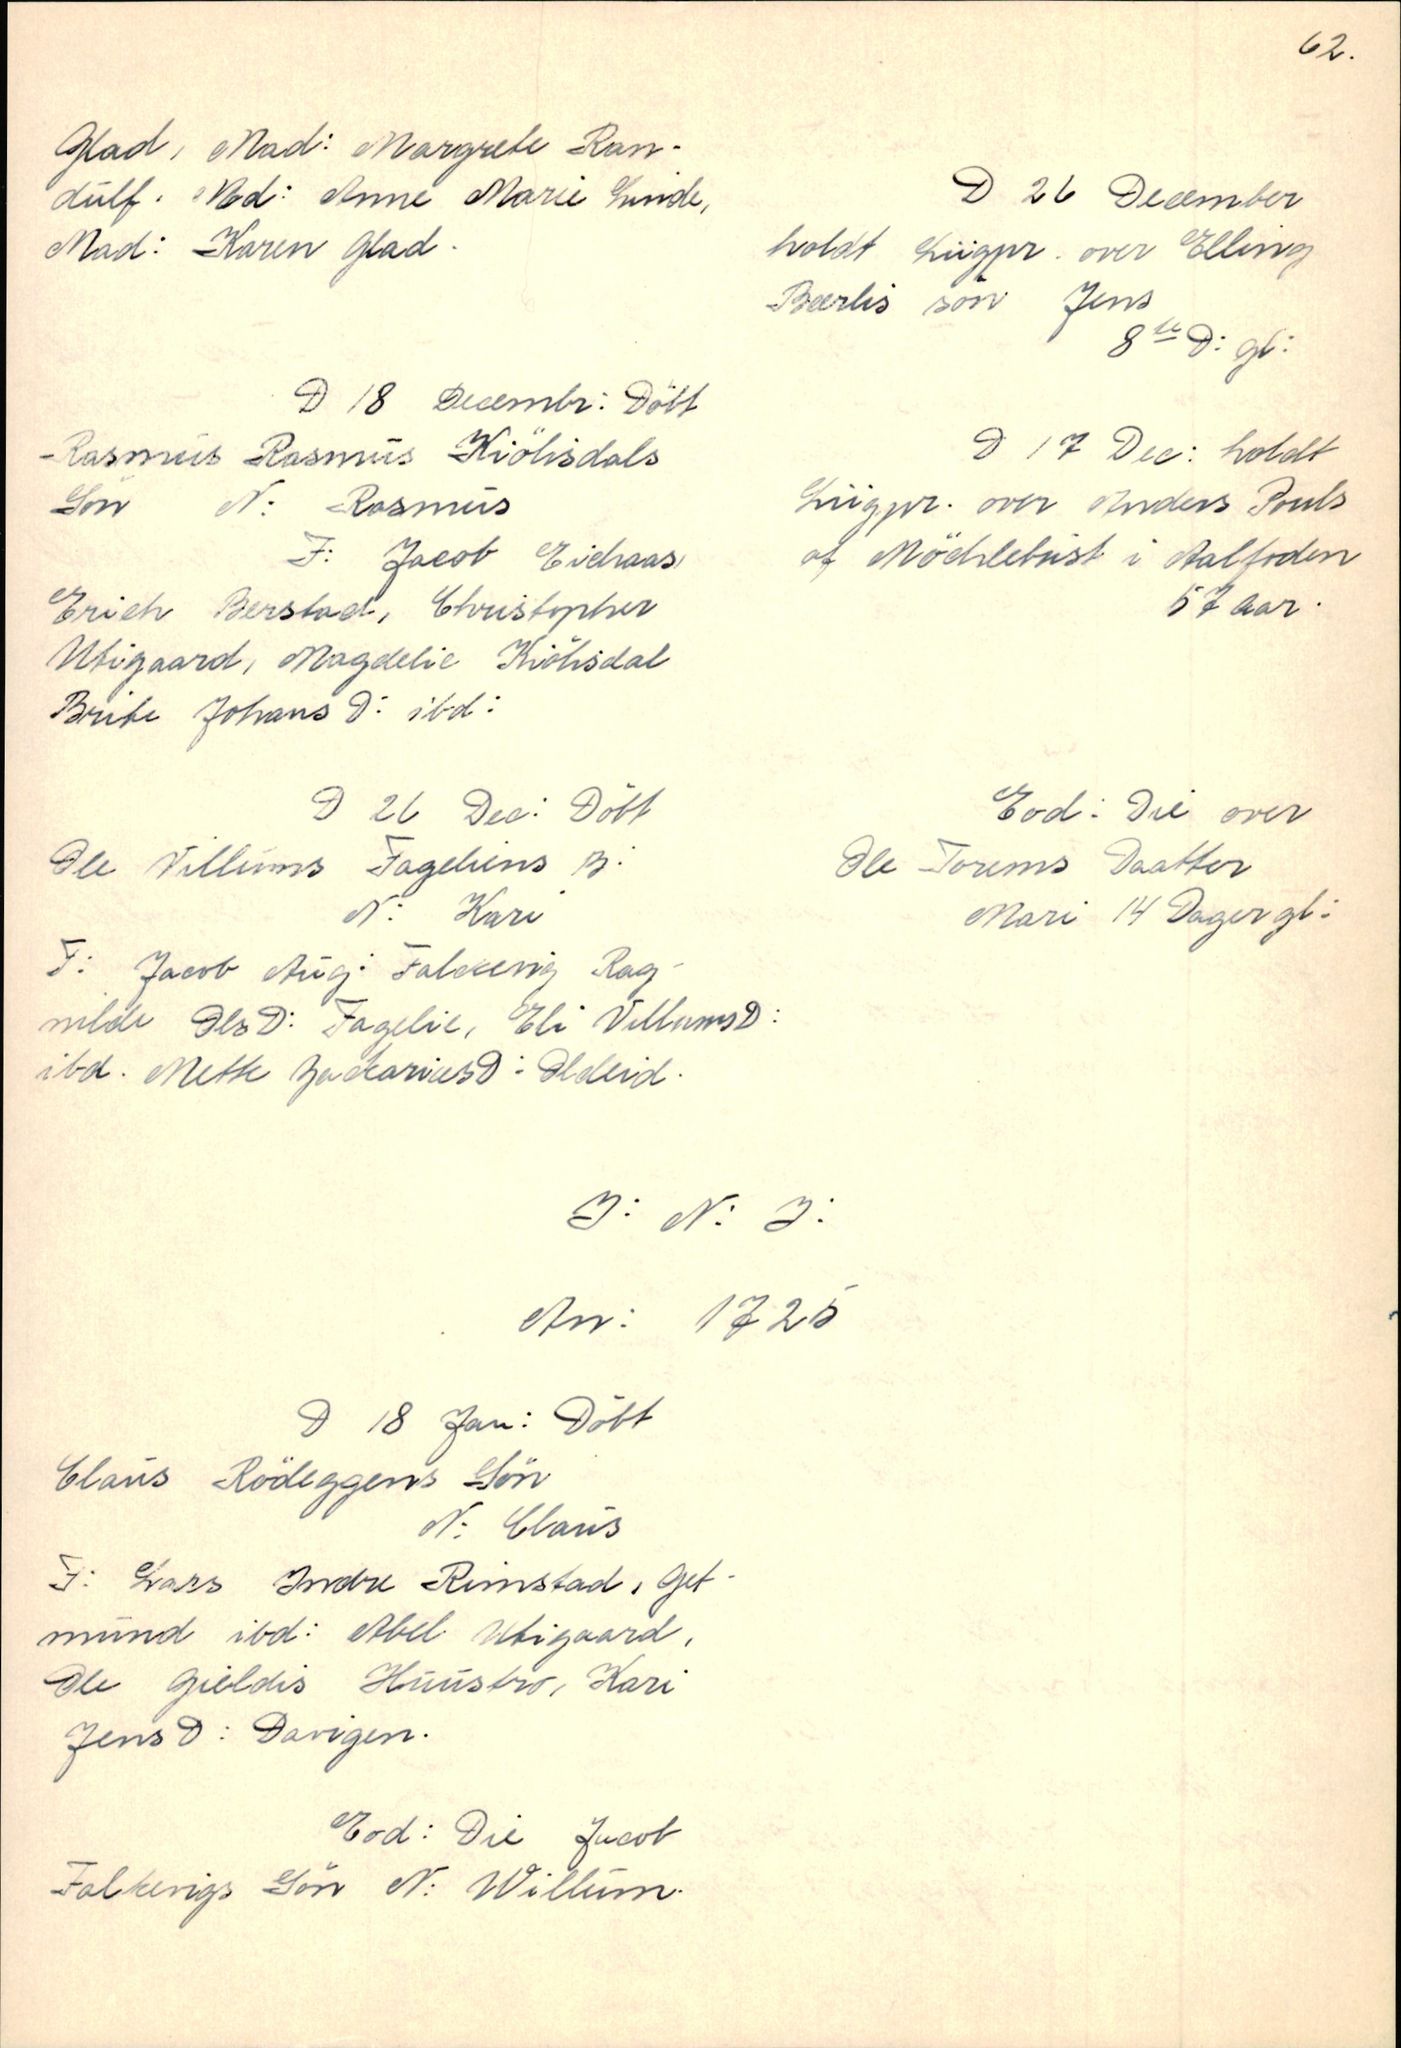 62.
Glad, Mad: Margrete Ran-
dulf. Md: Anne Marie Linde,
Mad: Karen Glad.
D 18 Decembr: Döbt
Rasmus Rasmus Kiölisdals
Sön N: Rasmus
F: Jacob Eidraas,
Erich Berstad, Christopher
Utigaard, Magdelie Kiölisdal
Brite Johans D: ibd:
D 26 Dec: Döbt
Ole Villums Fageliens B:
N: Kari
F: Jacob Aug: Falckevig Rag-
nilde Ols D: Fagelie, Eli Villums D:
ibd. Mette Zackarias D: Oldeid.
D 26 December
holdt Liigpr. over Elling
Bærlis sön Jens
8te D: gl:
D 17 Dec: holdt
Liigpr. over Anders Pouls
af Möchlebust i Aalfoden
57 Aar.
Eod: Die over
Ole Torems Daatter
Mari 14 Dager gl:
J: N: J:
An: 1725
D 18 Jan: Döbt
Claus Rödeggens Sön
N: Claus
F: Lars Indre Rimstad, Get-
mund ibd: Abel Utigaard,
Ole Gieldis Huustro, Kari
Jens D: Davigen.
Eod: Die Jacob
Falkevigs Sön N: Willum.